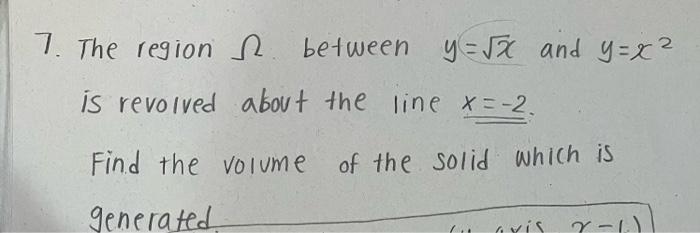 7. The region Ω between y=√x and y=x²
is revolved about the line x=-2.
Find the volume of the solid which is
generated.